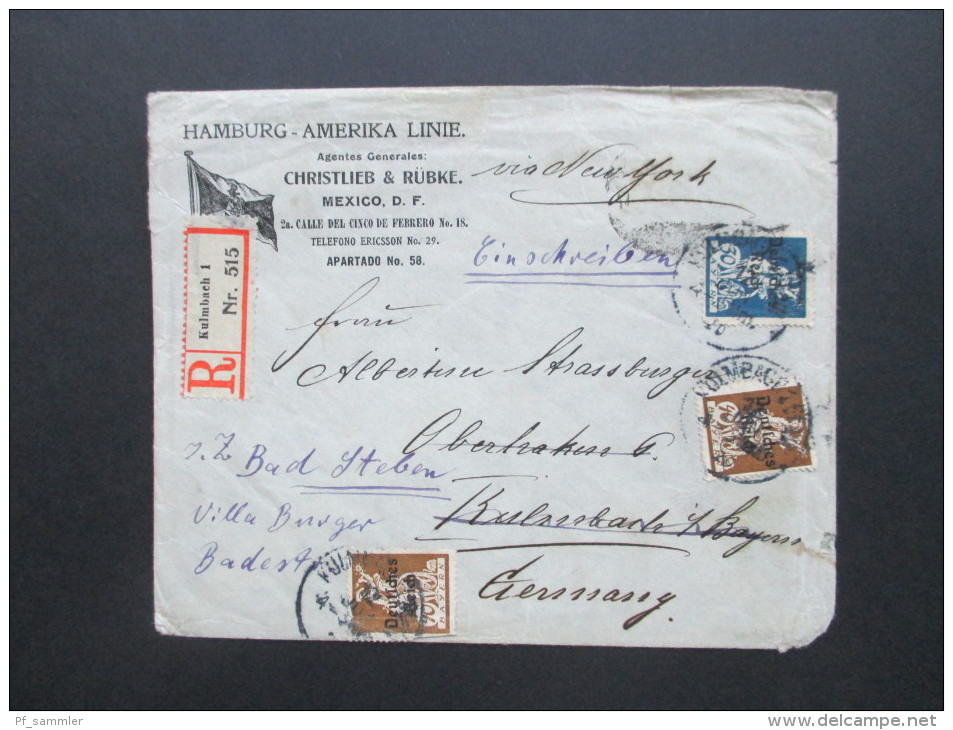 HAMBURG - AMERIKA LINIE.
Agentes Generales:
CHRISTLIEB & RÜBKE.
MEXICO, D. F.
2a. CALLE DEL CINCO DE FEBRERO No. 18.
TELEFONO ERICSSON No. 29.
APARTADO No. 58.
via New York
Einschreiben
R
Kulmbach 1
Nr. 515
Frau
Albertine Strassburger
6.
Kulmbach i/ Bayern
Germany
z. Z. Bad Steben
Villa Burger
Deutsches Reich
BAYERN
KULMBACH
Deutsches Reich
BAYERN
Deutsches Reich
BAYERN
Pf_sammler
www.delcampe.net